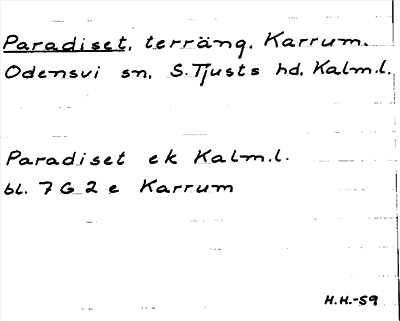 Paradiset, terräng. Karrum.
Odensvi sn, S. Tjusts hd. Kalm.l.
Paradiset ek Kalm.l.
bl. 7 G 2 e Karrum
H.H.-59